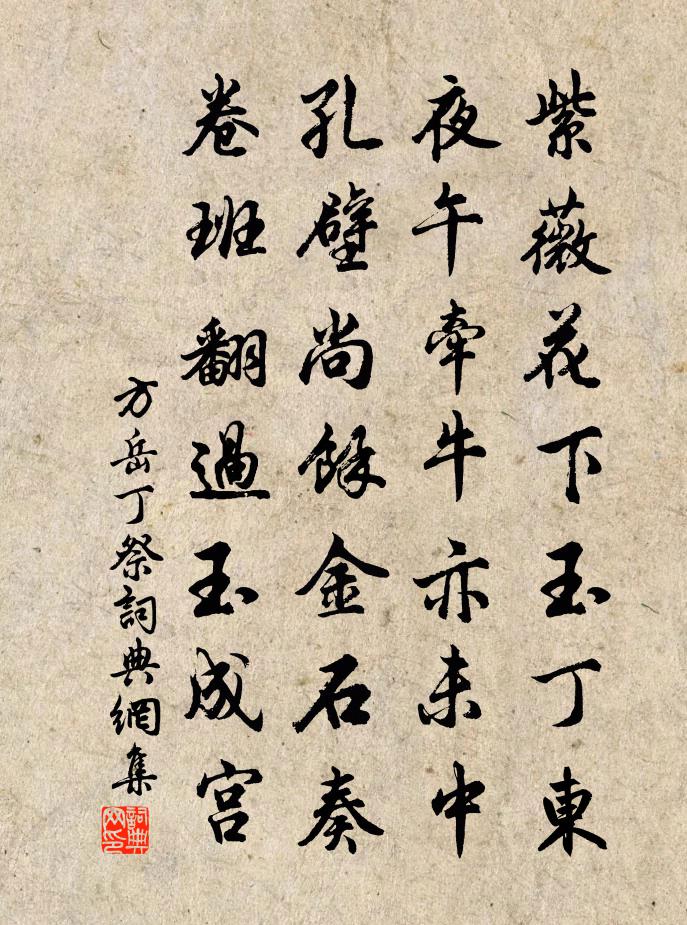 紫薇花下玉丁東
夜午牽牛亦未中
孔壁尚餘金石奏
卷班翻過玉成宮
方岳丁祭詞典網集
詞典網印